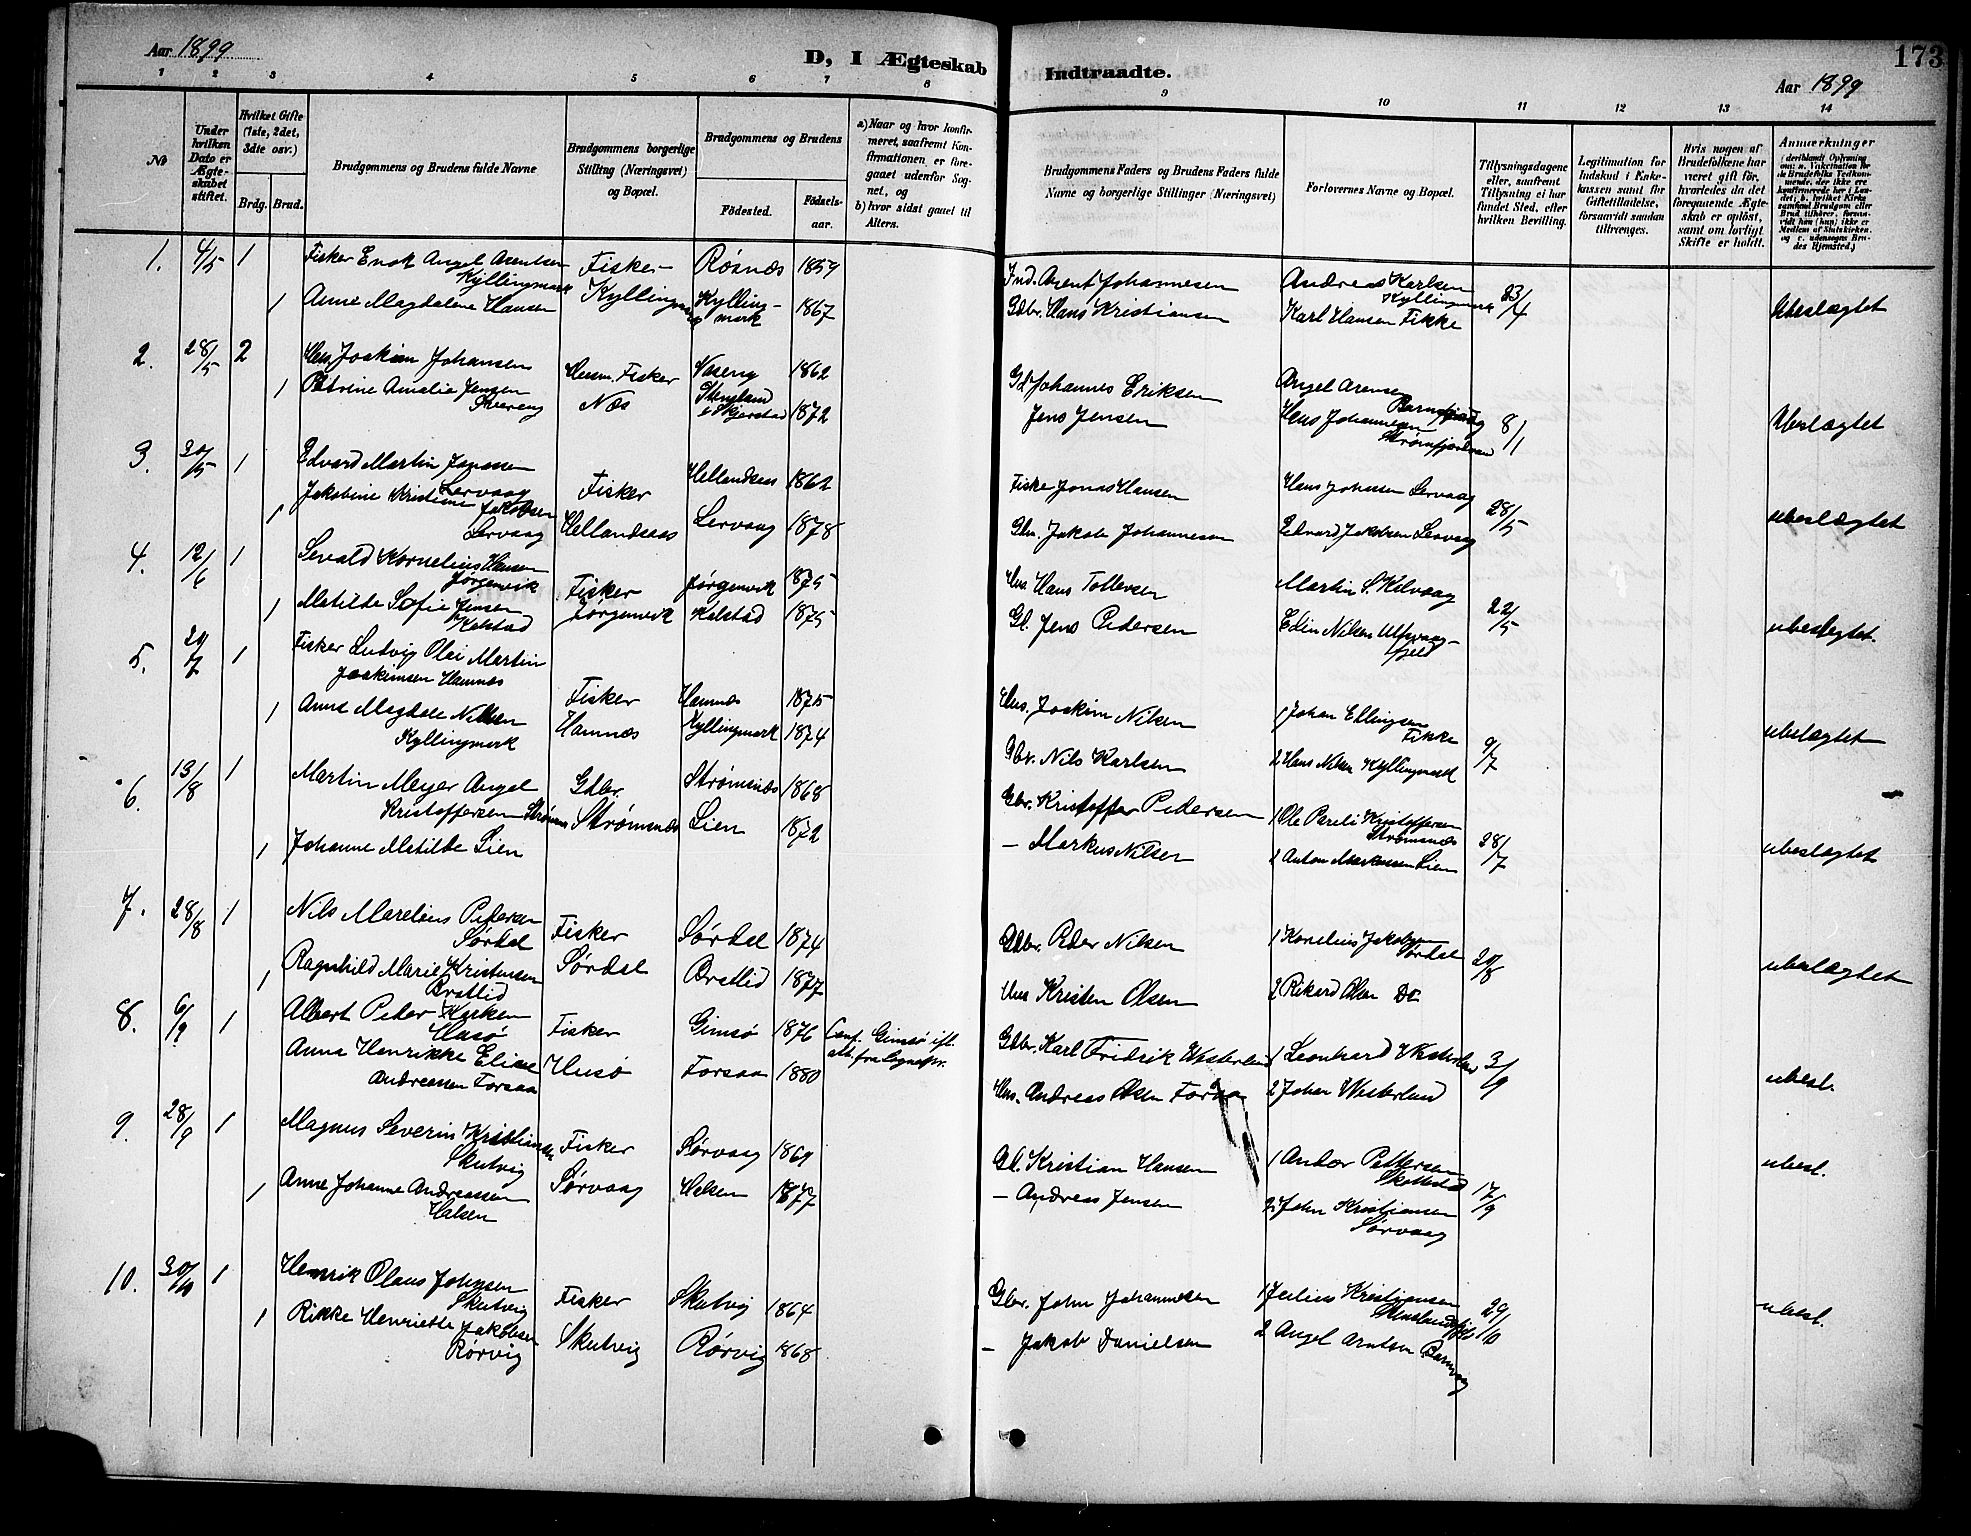 Aar 1899
D, I Ægteskab Indtraadte.
173
Aar 1899
1 2 3 4 5 6 7 8 9 10 11 12 13 14
No
Under hvilken Dato er Ægte-skabet stiftet.
Hvilket Gifte (1ste, 2det, 3die osv.)
Brdg. Brud.
Brudgommens og Brudens fulde Navne
Brudgommens borgerlige Stilling (Næringsvei) og Bopæl.
Brudgommens og Brudens
Fødested.
Fødsels-aar.
a) Naar og hvor konfir-meret, saafremt Kon-firmationen er fore-gaaet udenfor Sog-net, og
b) hvor sidst gaaet til Alters.
Brudgommens Faders og Brudens Faders fulde Navne og borgerlige Stillinger (Næringsvei)
Forlovernes Navne og Bopæl.
Tillysningsdagene eller, saafremt Tillysning ei har fundet Sted, efter hvilken Bevilling.
Legitimation for Indskud i Enke-kassen samt for Giftetilladelse, forsaavidt saadan tiltrænges.
Hvis nogen af Brudefolkene har været gift før, hvorledes da det foregaaende Ægte-skab er opløst, samt om lovligt Skifte er holdt.
Anmærkninger
1. 4/5 1 Fisker Enok Angel Arentsen Kyllingmark Fisker Røsnæs 1859 Ind. Arent Johannesen Andreas Karlsen Kyllingmark 23/4
1 Anne Magdalene Hansen Kyllingmark Kylling-mark 1867 Gdbr. Hans Kristiansen Karl Hansen Fikke Ubeslægtet
2. 28/5 2 Hus. Joakim Johansen Husm. Fisker Naseng 1862 Gd Johannes Eriksen Angel Arensen
1 Petrine Amalie Jensen Næs 1872 Jens Jensen Hans Johannesen Strømfjordnes 8/1 Ubeslægtet
3. 30/5 1 Edvard Martin Jonassen Lervaag Fisker Hellandsaas 1862 Fisker Jonas Hansen Hans Johnsen Lervaag 28/5
1 Jakobine Kristiane Jakobsen Lervaag Hellandsaas Lervaag 1878 Gbr. Jakob Johannesen Edvard Jakobsen Lervaag ubeslægtet
4. 12/6 1 Sevald Kornelius Hansen Jørgenvik Fisker Jørgenvik 1875 Hus Hans Tollevsen Martin S. Kilvaag 22/5
1 Matilde Sofie Jensen Kalstad Jørgenvik Kalstad 1875 Gl. Jens Pedersen Edin Nilsen ubeslegtet.
5. 20/7 1 Fisker Ludvig Olai Martin Joakimsen Hamnæs Fisker Hamnæs 1875 Hus. Joakim Nilsen 1 Johan Ellingsen Fikke 9/7
1 Anne Magdale Nilsen Kyllingmark Hamnæs Kyllingmark 1874 Gbr. Nils Karlsen 2 Hans Nilsen Kyllingmark ubelægtet
6. 13/8 1 Martin Meyer Angel Kristoffersen Gdbr. Strømsnæs 1868 Gbr. Kristoffer Pedersen 1 Ole Pareli Kristoffersen Strømsnæs 28/7
1 Johanne Matilde Lien Strømsnæs Lien 1872 – Markus Nilsen 2 Anton Markussen Lien ubeslægtet
7. 28/8 1 Nils Marelius Pedersen Sørdal Fisker Sørdal 1874 Gdbr. Peder Nilsen 1 Kornelius Jakobsen Sørdal 20/8
1 Ragnhild Marie Kristensen Bratlid Sørdal Bratlid 1877 Hus Kristen Olsen 2 Rikard Olsen Do ubeslægtet
8. 6/9 1 Albert Peder Karlsen Husø Fisker Gimsø 1876 Conf. Gimsø ifl. att. fra Sognepr. Gdbr. Karl Fridrik Westerlund 1 Leonhard Westerlund 3/9
Anna Henrikke Elise Andreassen Forsaa Husø Forsaa 1880 Hus. Andreas Olsen Forsaa 2 Johan Westerlund ubesl.
9. 28/9 1 Magnus Severin Kristiansen Skutvig Fisker Sørvaag 1869 Gl. Kristian Hansen 1 Andor Pettersen 17/9
1 Anne Johanne Andreassen Halsen Sørvaag Halsen 1877 – Andreas Jensen 2 John Kristiansen Sørvaag ubesl.
10. 30/10 1 Henrik Olaus Johnsen Skutvig Fisker Skutvig 1864 Gbr. John Johannesen 1 Julius Kristiansen 29/10
1 Rikke Henriette Jakobsen Rørvig Skutvig Rørvig 1868 – Jakob Danielsen 2 Angel Arntsen ubesl.